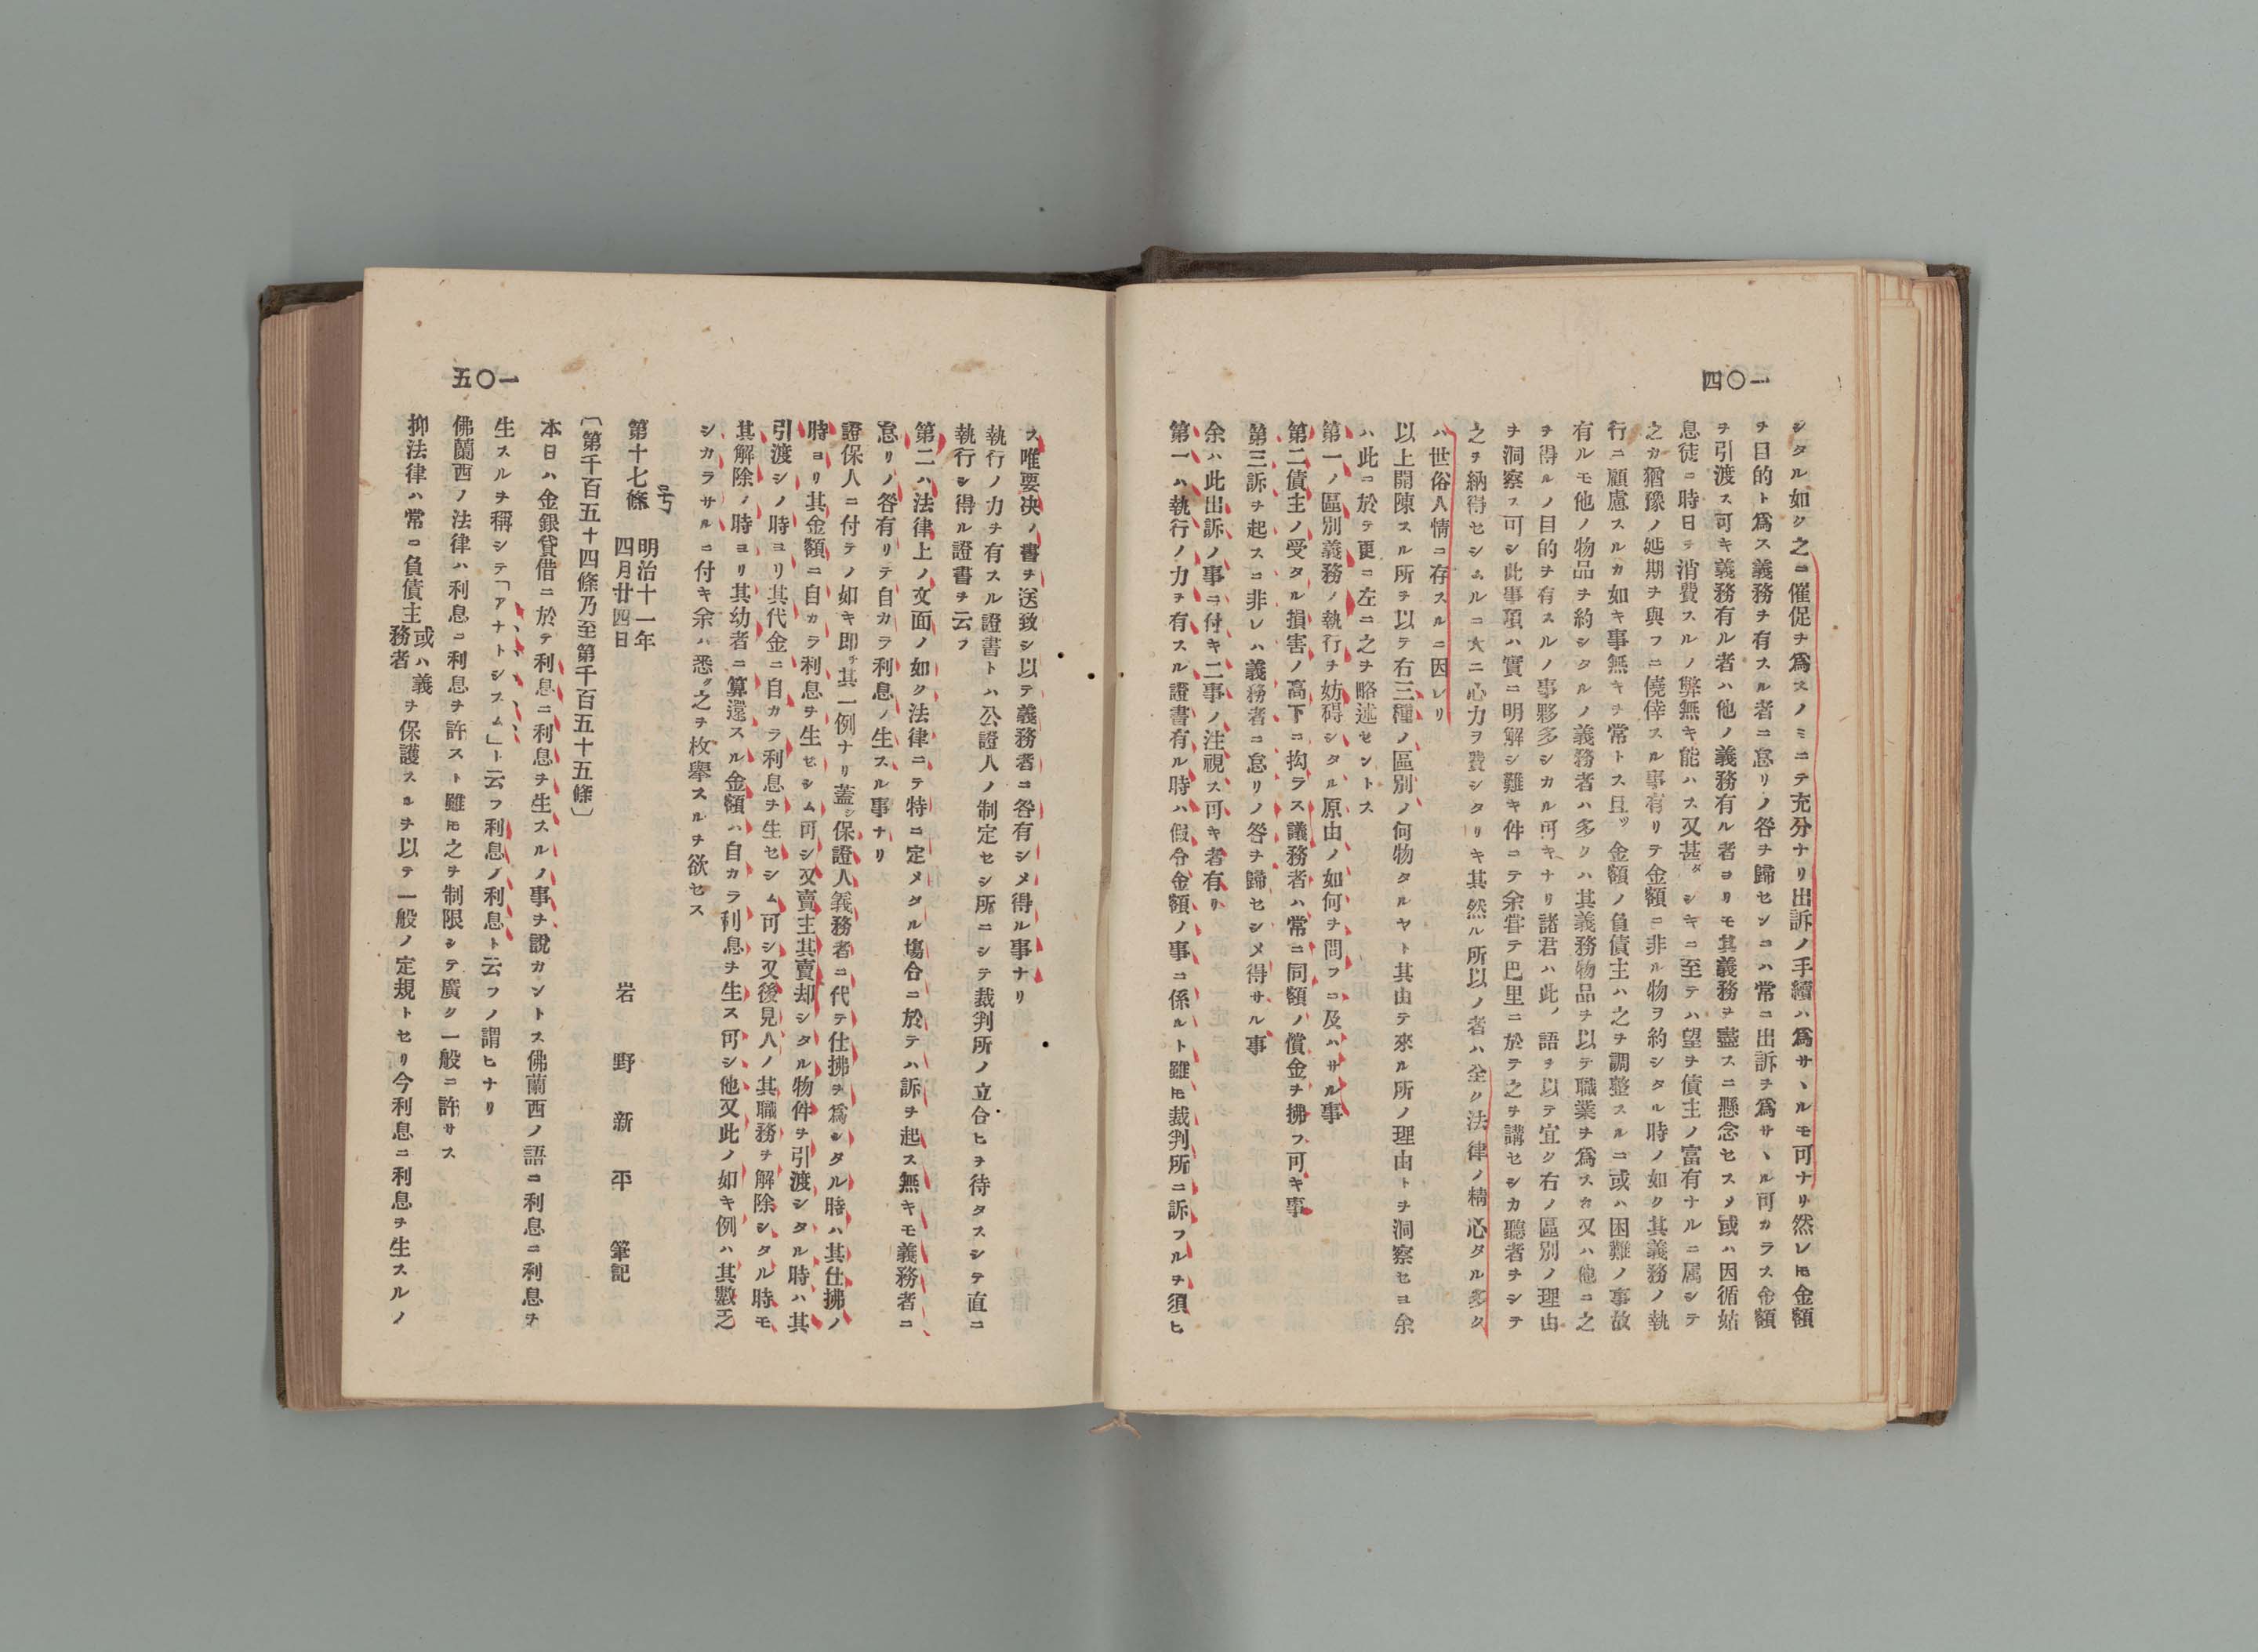 一〇四
シタル如ク之ニ催促ヲ爲スノミニテ充分ナリ出訴ノ手續ハ爲サヽルモ可ナリ然レ𪜈金額
ヲ目的ト爲ス義務ヲ有スル者ニ怠リノ咎ヲ歸センコハ常ニ出訴ヲ爲サヽル可カラス金額
ヲ引渡ス可キ義務有ル者ハ他ノ義務有ル者ヨリモ其義務ヲ盡スニ懸念セスノ或ハ因循姑
息徒ニ時日ヲ消費スルノ弊無キ能ハス又甚タシキニ至テハ望ヲ債主ノ富有ナルニ属シテ
之カ猶豫ノ延期ヲ與フニ僥倖スル事有リテ金額ニ非ル物ヲ約シタル時ノ如ク其義務ノ執
行ニ顧慮スルカ如キ事無キヲ常トス且ツ金額ノ負債主ハ之ヲ調整スルニ或ハ困難ノ事故
有ルモ他ノ物品ヲ約シタルノ義務者ハ多クハ其義務物品ヲ以テ職業ヲ爲スカ又ハ他ニ之
ヲ得ルノ目的ヲ有スルノ事夥多シカル可キナリ諸君ハ此ノ語ヲ以テ宜ク右ノ區別ノ理由
ヲ洞察ス可シ此事項ハ實ニ明解シ難キ件ニテ余甞テ巴里ニ於テ之ヲ講セシカ聽者ヲシテ
之ヲ納得セシムルニ大ニ心力ヲ費シタリキ其然ル所以ノ者ハ全ク法律ノ精心タル多ク
ハ世俗人情ニ存スルニ因レリ
以上開陳スル所ヲ以テ右三種ノ區別ノ何物タルヤト其由テ來ル所ノ理由トヲ洞察セヨ余
ハ此ニ於テ更ニ左ニ之ヲ略述セントス
第一ノ區別義務ノ執行ヲ妨碍シタル原由ノ如何ヲ問フニ及ハサル事
第二債主ノ受タル損害ノ高下ニ拘ラス議務者ハ常ニ同額ノ償金ヲ拂フ可キ事
第三訴ヲ起スニ非レハ義務者ニ怠リノ咎ヲ歸セシメ得サル事
余ハ此出訴ノ事ニ付キ二事ノ注視ス可キ者有リ
第一ハ執行ノ力ヲ有スル證書有ル時ハ假令金額ノ事ニ係ルト雖𪜈裁判所ニ訴フルヲ須ヒ
一〇五
ス唯要决ノ書ヲ送致シ以テ義務者ニ咎有シメ得ル事ナリ
執行ノ力ヲ有スル證書トハ公證人ノ制定セシ所ニシテ裁判所ノ立合ヒヲ待タスシテ直ニ
執行シ得ル證書ヲ云フ
第二ハ法律上ノ文面ノ如ク法律ニテ特ニ定メタル塲合ニ於テハ訴ヲ起ス無キモ義務者ニ
怠リノ咎有リテ自カラ利息ノ生スル事ナリ
證保人ニ付テノ如キ即チ其一例ナリ蓋シ保證人義務者ニ代テ仕拂ヲ爲シタル時ハ其仕拂ノ
時ヨリ其金額ニ自カラ利息ヲ生セシム可シ又賣主其賣却シタル物件ヲ引渡シタル時ハ其
引渡シノ時ヨリ其代金ニ自カラ利息ヲ生セシム可シ又後見人ノ其職務ヲ解除シタル時モ
其解除ノ時ヨリ其幼者ニ算還スル金額ハ自カラ利息ヲ生ス可シ他又此ノ如キ例ハ其數乏
シカラサルニ付キ余ハ悉ク之ヲ枚擧スルヲ欲セス
第十七條 号 明治十一年四月廿四日 岩野新平 筆記
〔第千百五十四條乃至第千百五十五條〕
本日ハ金銀貸借ニ於テ利息ニ利息ヲ生スルノ事ヲ說カントス佛蘭西ノ語ニ利息ニ利息ヲ
生スルヲ稱シテ「アナトシスム」ト云フ利息ノ利息ト云フノ謂ヒナリ
佛蘭西ノ法律ハ利息ニ利息ヲ許スト雖𪜈之ヲ制限シテ廣ク一般ニ許サス
抑法律ハ常ニ負債主或ハ義務者ヲ保護スルヲ以テ一般ノ定規トセリ今利息ニ利息ヲ生スルノ